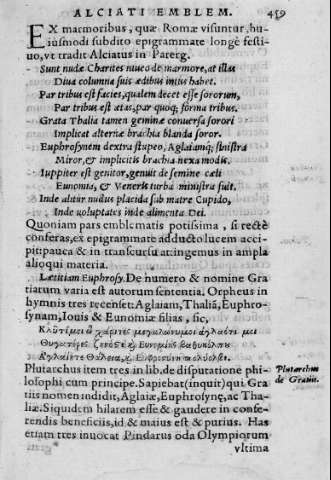 ALCIATI EMBLEM. 459
EX marmoribus, quæ Romæ visuntur, hu-
iusmodi subdito epigrammate longè festi-
uo, vt tradit Alciatus in Parerg.
Sunt nudæ Charites niueo de marmore, at illas
Diua columna suis ædibus intus habet.
Par tribus est facies, qualem decet esse sororum,
Par tribus est ætas, par quoq; forma tribus.
Grata Thalia tamen geminæ conuersa sorori
Implicat alterius brachia blanda soror.
Euphrosynem dextra stupeo, Aglaiamq; sinistra
Miror, & implicitis brachia nexa modis.
Iuppiter est genitor, genuit de semine cæli
Eunomia, & Veneris turba ministra fuit.
Inde alitur nudus placida sub matre Cupido,
Inde voluptates inde alimenta Dei.
Quoniam pars emblematis potissima, si rectè
conferas, ex epigrammate adducto lucem acci-
pit: pauca & in transcursu attingemus in ampla
alioqui materia.
Lætitiam Euphrosy. De numero & nomine Gra
tiarum varia est autorum sententia. Orpheus in
hymnis tres recenset: Aglaiam, Thaliā, Euphro-
synam, Iouis & Eunomiæ filias, sic,
Plutarchus item tres in lib. de disputatione phi-
losophi cum principe. Sapiebat (inquit) qui Gra
tiis nomen indidit, Aglaiæ, Euphrosynę, ac Tha-
liæ. Siquidem hilarem esse & gaudere in confe-
rendis beneficiis, id & maius est & purius. Has
etiam tres inuocat Pindarus oda Olympiorum
vltima
Plutarchus
de Gratiis.